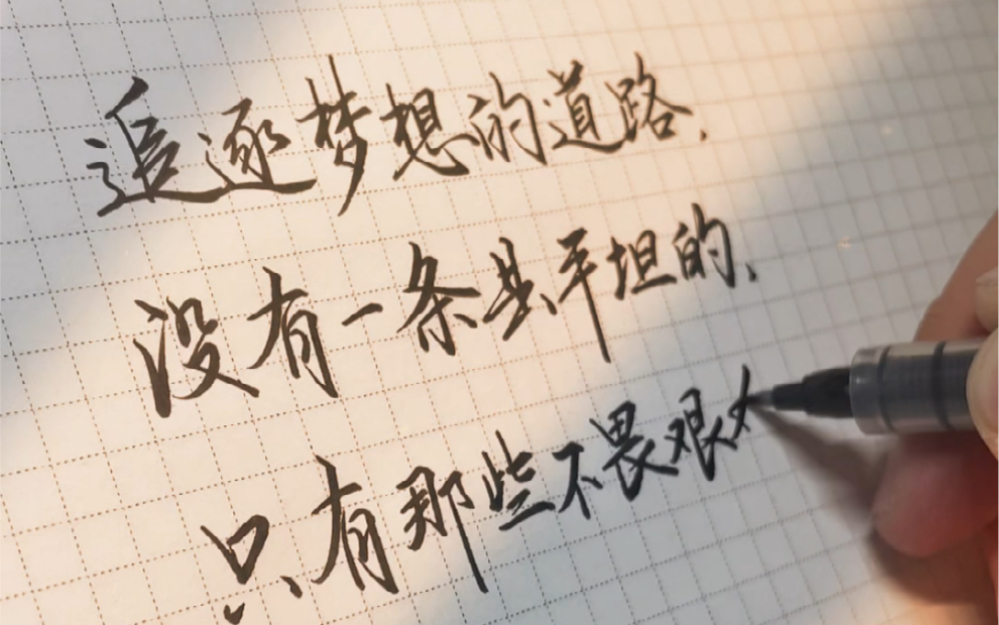 追逐梦想的道路，
没有一条是平坦的，
只有那些不畏艰